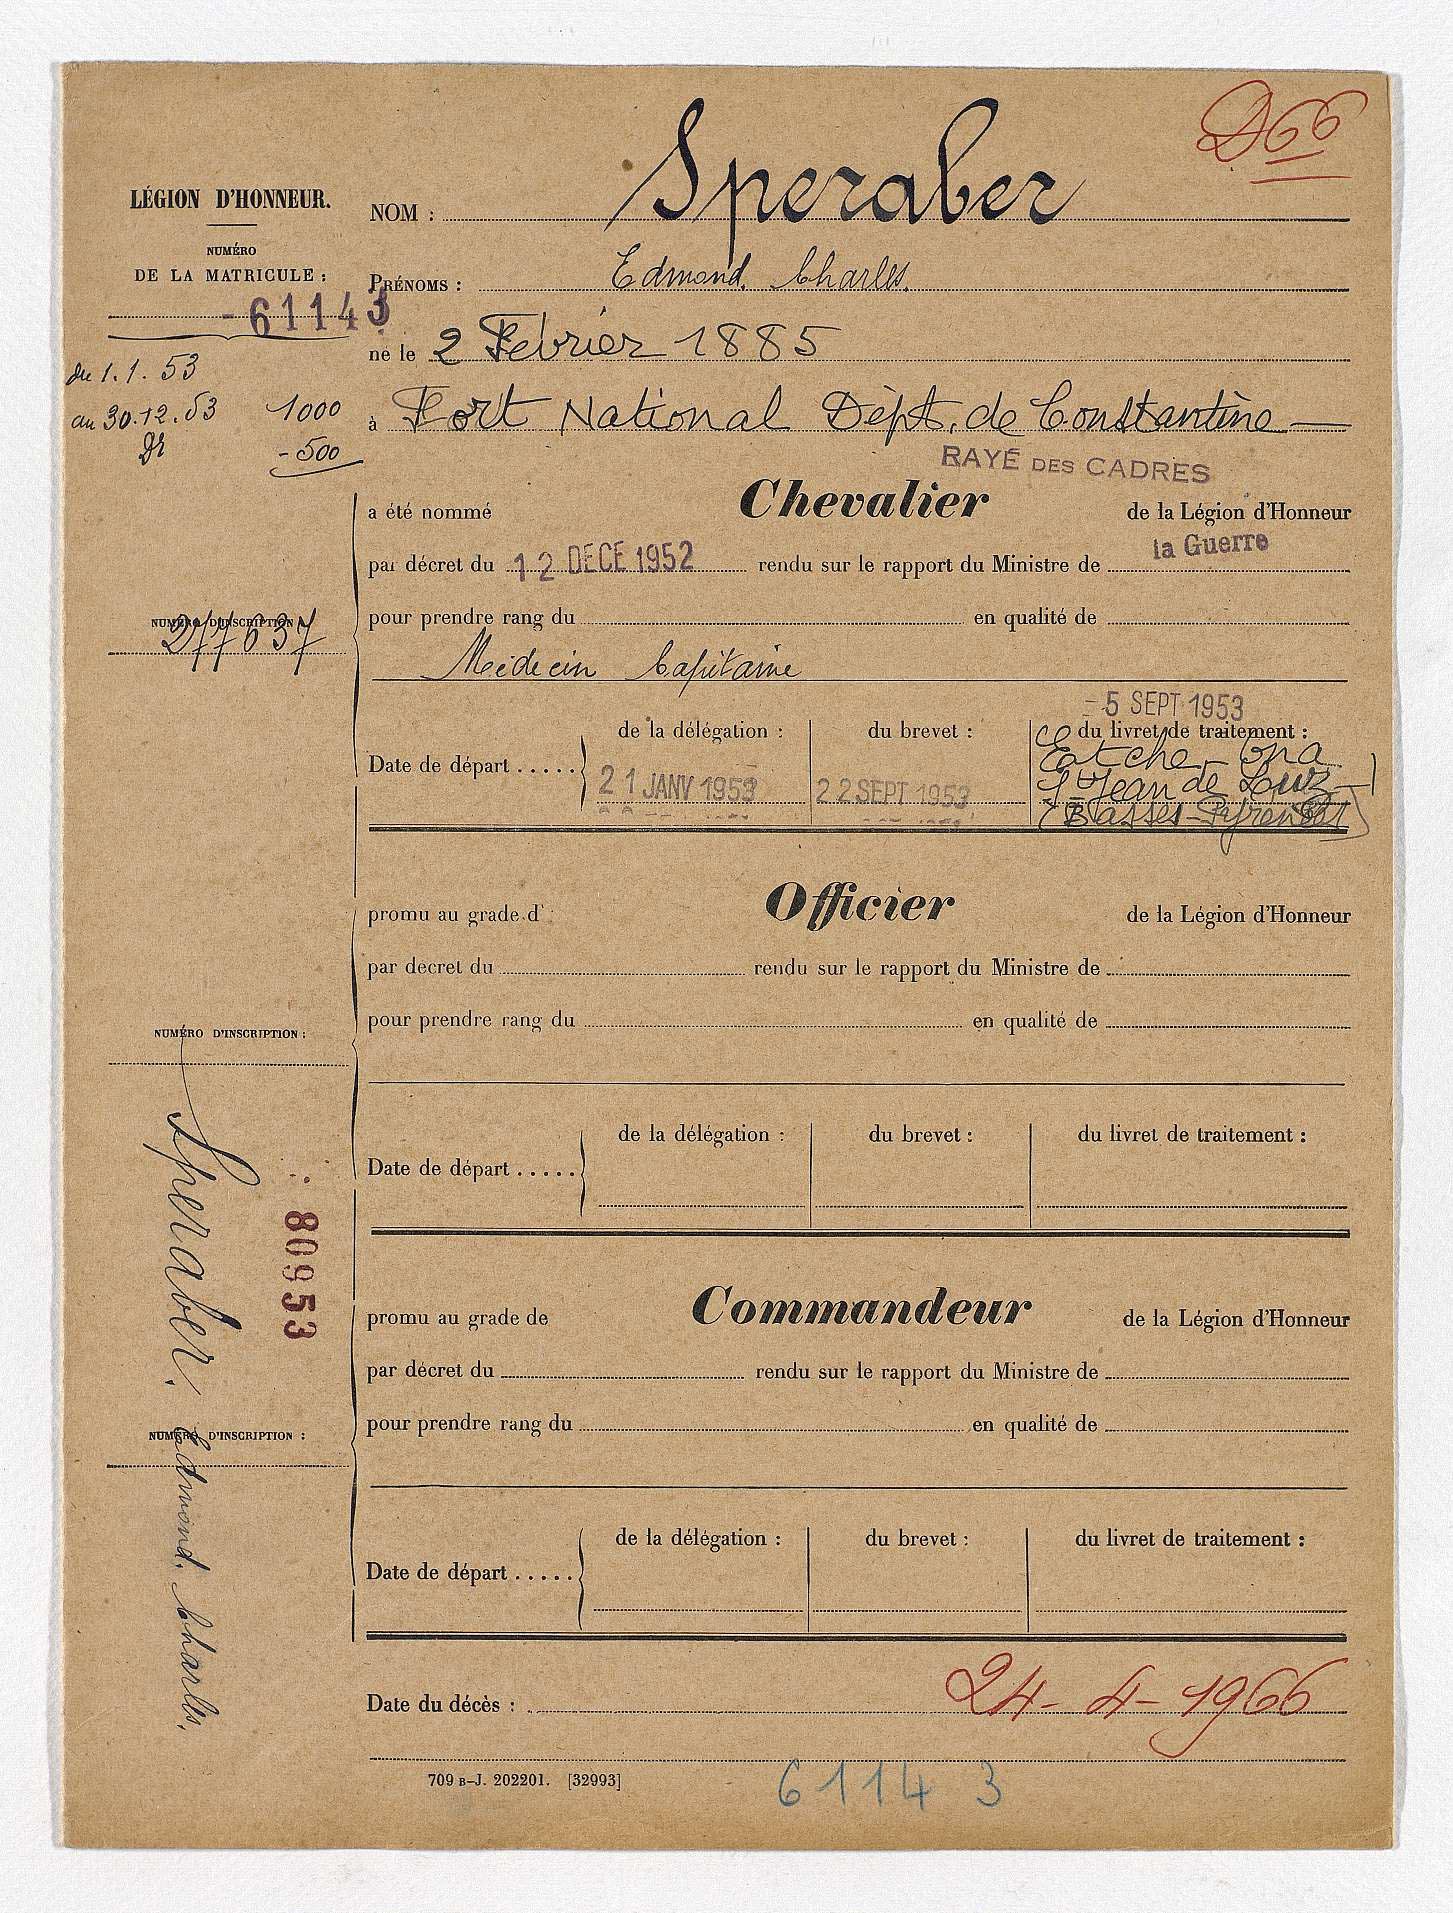 D66
LÉGION D'HONNEUR.
NUMÉRO
DE LA MATRICULE :
- 61143
du 1.1.53
au 30.12.53 1000
- 500
NOM : Speraber
PRÉNOMS : Edmond. Charles.
né le 2 Février 1885
à Fort National Dépt. de Constantine —
RAYÉ DES CADRES
a été nommé Chevalier de la Légion d'Honneur
par décret du 12 DECE 1952 rendu sur le rapport du Ministre de la Guerre
pour prendre rang du en qualité de
Médecin Capitaine
NUMÉRO D'INSCRIPTION :
277637
- 5 SEPT 1953
de la délégation : du brevet : du livret de traitement :
Date de départ ..... 21 JANV 1953 22 SEPT 1953
Etche Ona
St Jean de Luz
(Basses-Pyrénées)
promu au grade d' Officier de la Légion d'Honneur
par décret du rendu sur le rapport du Ministre de
pour prendre rang du en qualité de
NUMÉRO D'INSCRIPTION :
de la délégation : du brevet : du livret de traitement :
Date de départ .....
Speraber. Edmond. Charles.
80953
promu au grade de Commandeur de la Légion d'Honneur
par décret du rendu sur le rapport du Ministre de
pour prendre rang du en qualité de
NUMÉRO D'INSCRIPTION :
de la délégation : du brevet : du livret de traitement :
Date de départ .....
Date du décès : 24-4-1966
709 B-J. 202201. [32993]
61143